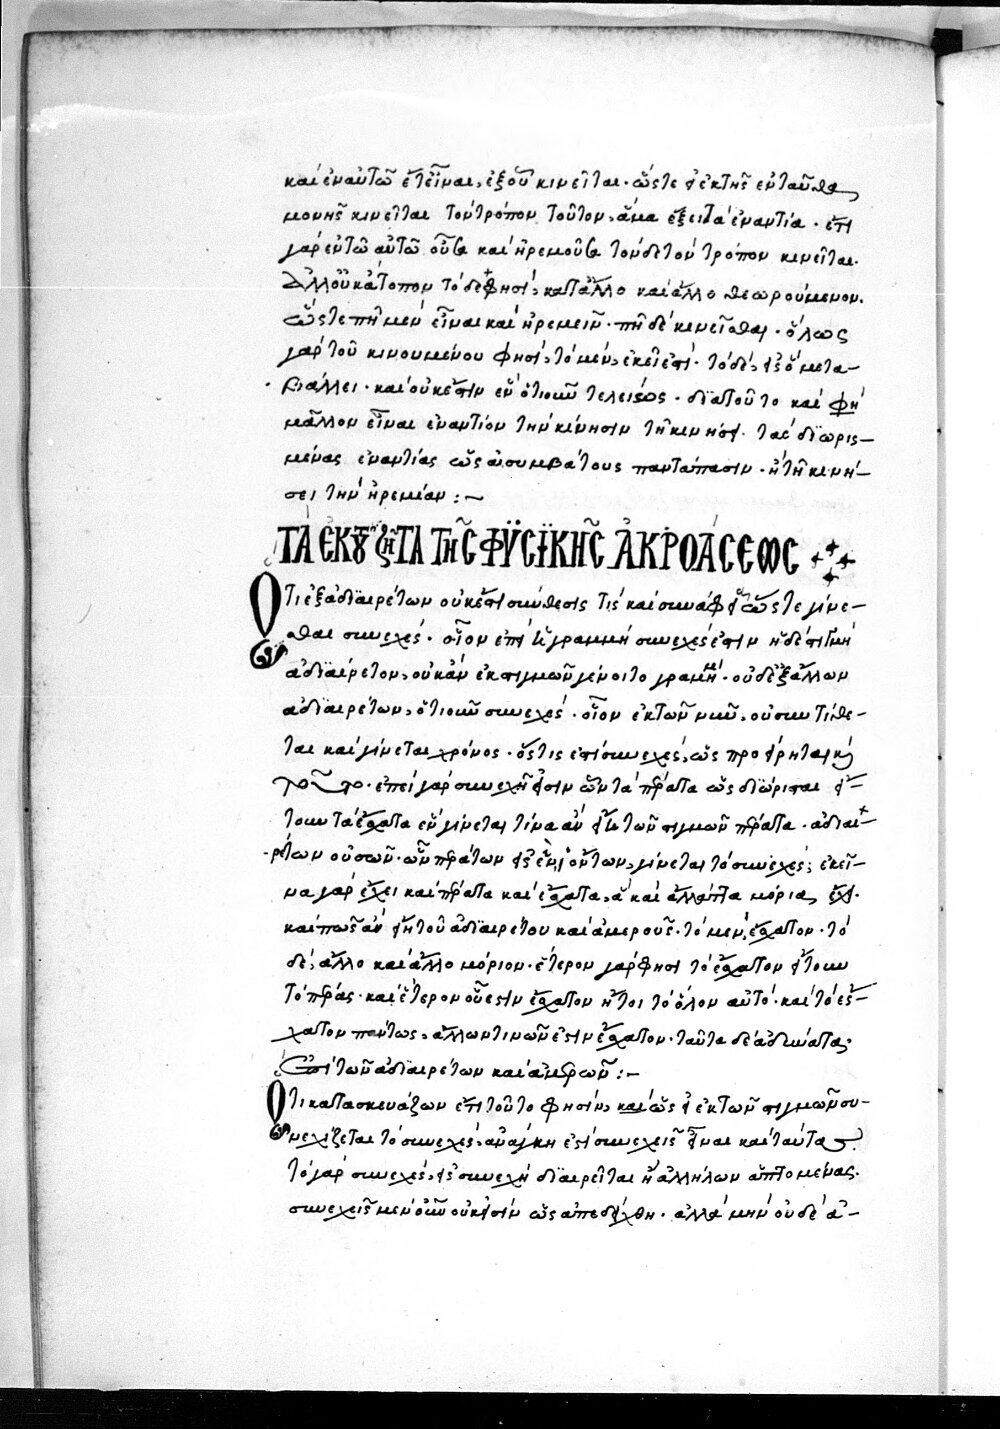 καὶ ἐν αὐτῷ ἔτι εἶναι, ἐξ οὗ κινεῖται. ὥστε ἡ ἐκ τῆς ἐνταῦθα
μονῆς κινεῖται τὸν τρόπον τοῦτον, ἅμα ἕξει τὰ ἐναντία. ἔτι
γὰρ ἐν τῷ αὐτῷ οὖσα καὶ ἠρεμοῦσα τόνδε τὸν τρόπον κινεῖται.
ἀλλ' οὐ κατὰ τοπον τὸ δὲ φησὶ, κατ' ἄλλο καὶ ἄλλο θεωρούμενον.
ὥστε πῆ μὲν εἶναι καὶ ἠρεμεῖν. πῆ δὲ κινεῖσθαι. ὅλως
γὰρ τοῦ κινουμένου φησὶ, τὸ μὲν, ἐκεῖ ἐστί. τὸ δὲ, εἰς ὃ μετα-
βάλλει. καὶ οὐκ ἔστιν ἐν ὁτιοῦν τελείως. διὰ τοῦτο καὶ φη
μᾶλλον εἶναι ἐναντίον τὴν κίνησιν τῇ κινήσει. τὰς διωρισ-
μένας ἐναντίας ὡς ἀσυμβάτους παντάπασιν. ἢ τῇ κινή-
σει τὴν ἠρεμίαν :~
ΤᾺ ἘΚ ΤΟΥ ΖῆΤΑ ΤΗ͂Σ ΦΥΣΙΚΗ͂Σ ἈΚΡΟΆΣΕΩΣ
Ὅτι ἐξ ἀδιαιρέτων οὐκ ἔστι σύνθεσις τίς καὶ συνάφεια ὥστε γίνε-
σθαι συνεχές. οἷον ἐπεὶ ἡ γραμμὴ συνεχές ἐστιν ἡ δὲ στιγμὴ
ἀδιαίρετον, οὐκ ἂν ἐκ στιγμῶν γένοιτο γραμμή. οὐδ' ἐξ ἄλλων
ἀδιαιρέτων, ὁτιοῦν συνεχές. οἷον ἐκ τῶν νῦν, οὐ συντίθε-
ται καὶ γίνεται χρόνος. ὅστις ἐστὶ συνεχές, ὡς προείρηται καὶ
ἐπεὶ γὰρ συνεχῆ ἐστιν ὧν τὰ πέρατα ὡς διώρισται ἤ-
τουν τὰ ἔσχατα ἓν γίνεται τίνα ἂν εἴη τῶν στιγμῶν πέρατα. ἀδιαι-
ρέτων οὐσῶν. ὧν περάτων εἰς ἓν ἰόντων, γίνεται τὸ συνεχές; ἐκεῖ-
να γὰρ ἔχει καὶ πέρατα καὶ ἔσχατα, ἃ καὶ ἄλλάττα μόρια ἔχει.
καὶ πῶς ἂν εἴη τοῦ ἀδιαιρέτου καὶ ἀμεροῦς. τὸ μὲν, ἔσχατον. τὸ
δὲ, ἄλλο καὶ ἄλλο μόριον. ἕτερον γὰρ φησι τὸ ἔσχατον ἤτουν
τὸ πέρας. καὶ ἕτερον οὗ ἐστὶν ἔσχατον ἤτοι τὸ ὅλον αὐτό. καὶ τὸ ἔσ-
χατον πάντως, ἄλλων τινῶν ἐστὶν ἔσχατον. ταῦτα δὲ ἀδύνατα
ἐπὶ τῶν ἀδιαιρέτων καὶ ἀμερῶν :~
Ὅτι κατασκευάζων ἔτι τοῦτο φησὶν, καὶ ὡς εἰ ἐκ τῶν στιγμῶν συ-
νεχίζεται τὸ συνεχές, ἀνάγκη ἐστὶ συνεχεῖς εἶναι καὶ ταύτας.
τὸ γὰρ συνεχές, εἰς συνεχῆ διαιρεῖται ἢ ἀλλήλων ἁπτομένας.
συνεχεῖς μὲν οὖν οὐκ εἰσὶν ὡς ἀπεδείχθη. ἀλλὰ μὴν οὐδὲ ἁ-